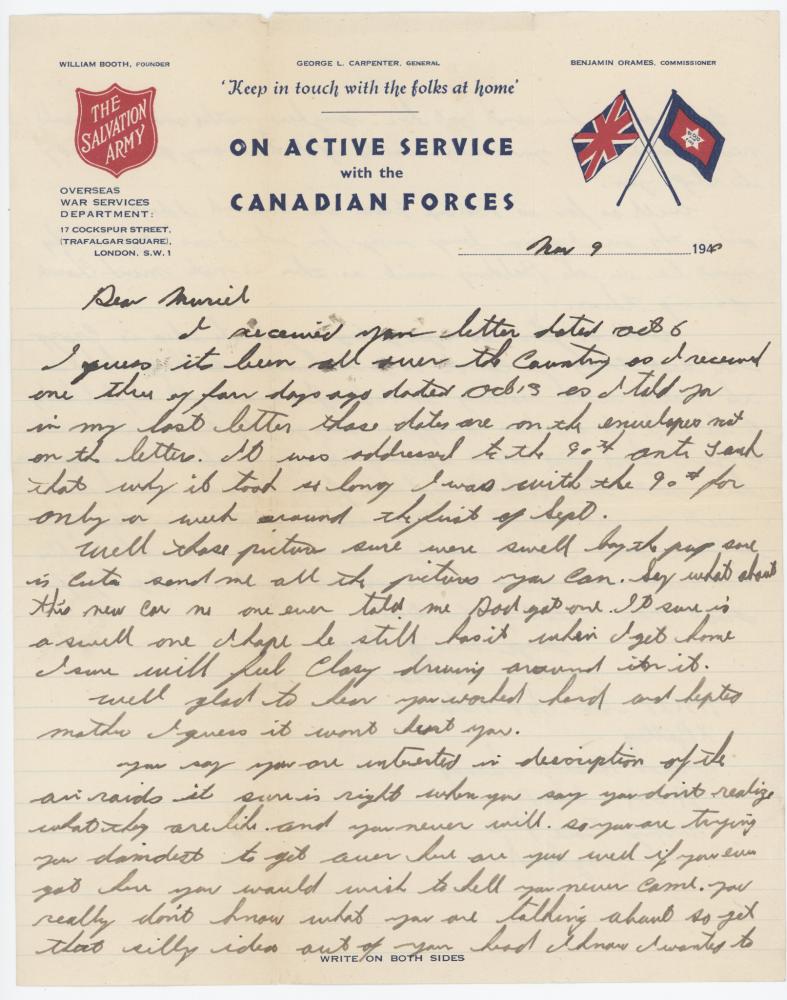 WILLIAM BOOTH, FOUNDER
GEORGE L. CARPENTER, GENERAL
BENJAMIN ORAMES, COMMISSIONER
'Keep in touch with the folks at home'
THE
SALVATION
ARMY
ON ACTIVE SERVICE
with the
CANADIAN FORCES
OVERSEAS
WAR SERVICES
DEPARTMENT:
17 COCKSPUR STREET,
(TRAFALGAR SQUARE),
LONDON. S.W.1
Nov 9 1940
Dear Muriel
I received your letter dated oct 6
I guess it been all over the Country as I received
one three of four days ago dated Oct 13 as I told you
in my last letter those dates are on the envelopes not
on the letters. It was addressed to the 90th anti Tank
that why it took so long I was with the 90th for
only a week around the first of Sept.
Well those pictures sure were swell boy the pup sure
is cute send me all the pictures you can. Say what about
this new car no one ever told me Dad got one. It sure is
a swell one I hope he still has it when I get home
I sure will feel Classy driving around in it.
Well glad to hear you worked hard and helped
mother I guess it wont hurt you.
you say you are interested in description of the
air raids it sure is right when you say you don't realize
what they are like. and you never will. so you are trying
you damdest to get over here are you well if you ever
got here you would wish to hell you never came. you
really don't know what you are talking about so get
that silly idea out of your head I know I wanted to
WRITE ON BOTH SIDES